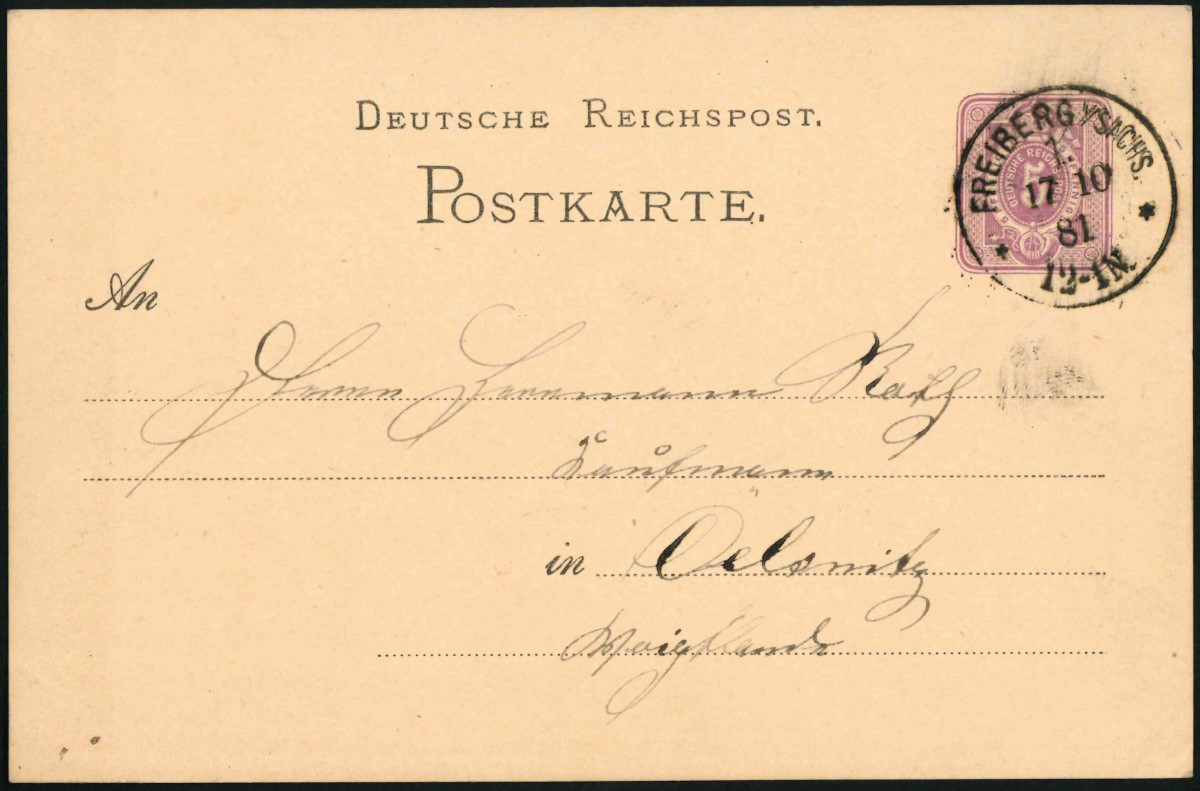 DEUTSCHE REICHSPOST.
POSTKARTE.
FREIBERG I/SACHS.
1.
17 10
81
12-1N.
DEUTSCHE REICHSPOST
5
PFENNIG
An
Herrn Herrmann
Kaufmann
in Oelsnitz
Voigtlande